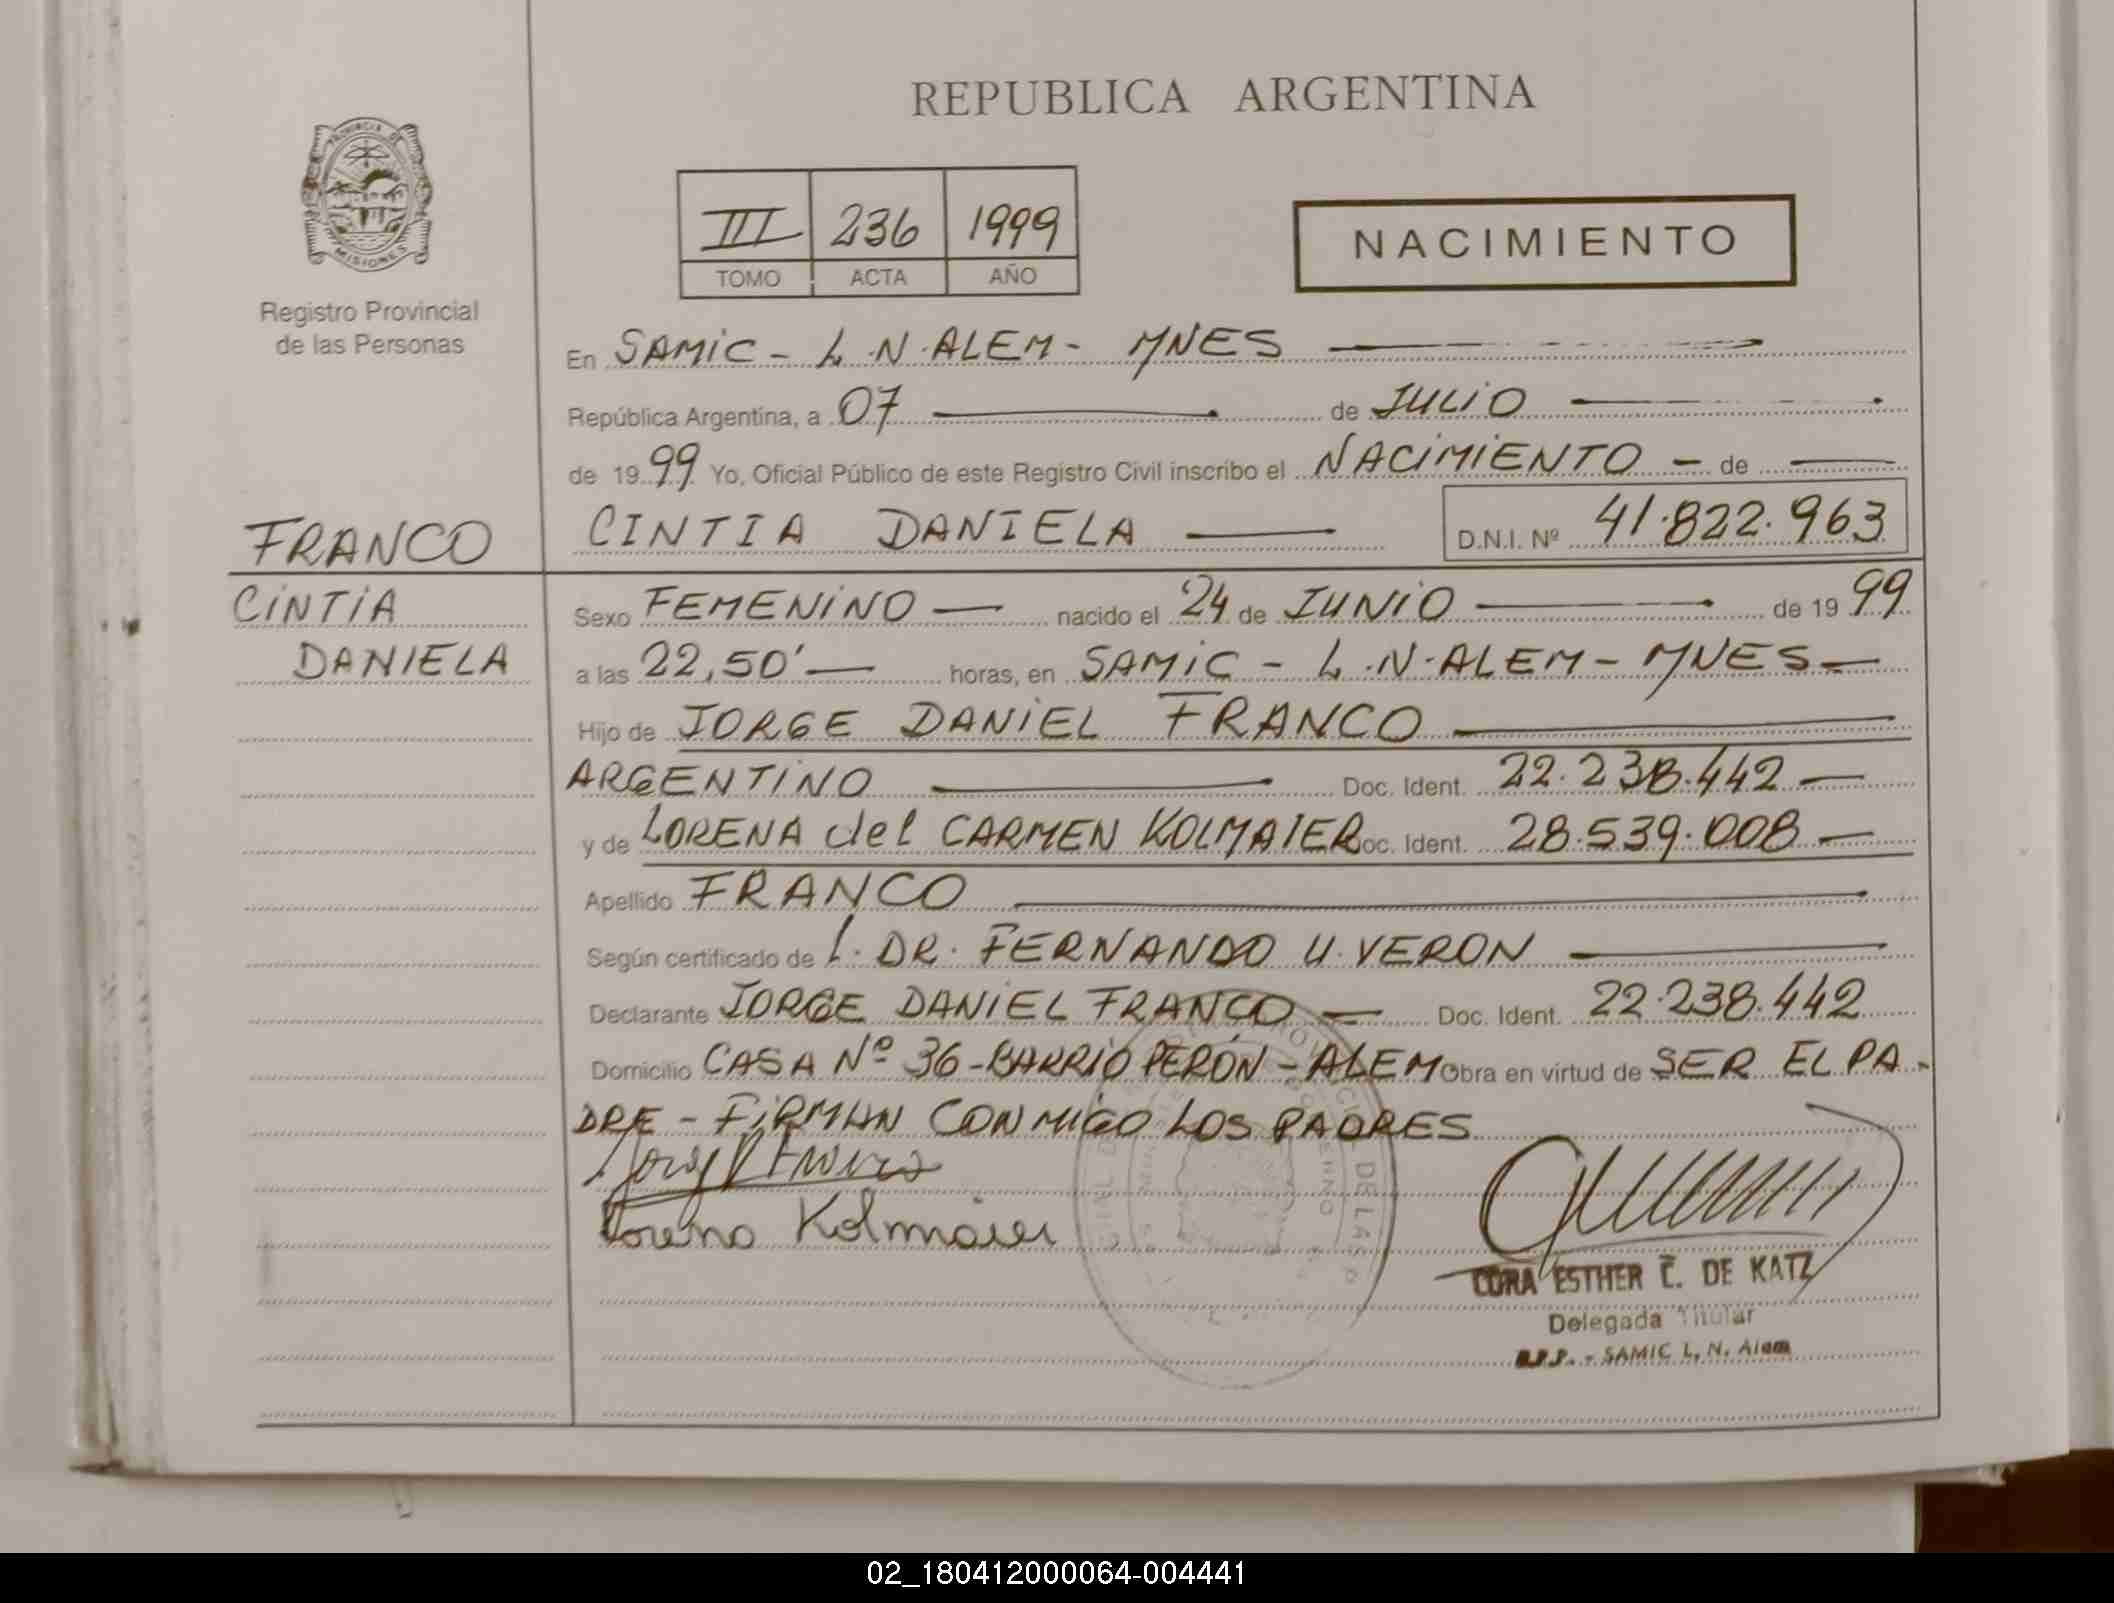 REPUBLICA ARGENTINA
PROVINCIA DE
MISIONES
Registro Provincial
de las Personas
III 236 1999
TOMO ACTA AÑO
NACIMIENTO
En SAMIC - L.N.ALEM - MNES
República Argentina, a 07 de JULIO
de 1999 Yo, Oficial Público de este Registro Civil inscribo el NACIMIENTO - de
FRANCO CINTIA DANIELA D.N.I. Nº 41.822.963
CINTIA
DANIELA
Sexo FEMENINO nacido el 24 de JUNIO de 1999
a las 22,50' horas, en SAMIC - L.N.ALEM - MNES
Hijo de JORGE DANIEL FRANCO
ARGENTINO Doc. Ident. 22.238.442
y de LORENA del CARMEN KOLMAIER Doc. Ident. 28.539.008
Apellido FRANCO
Según certificado de L. DR. FERNANDO U. VERON
Declarante JORGE DANIEL FRANCO Doc. Ident. 22.238.442
Domicilio CASA Nº 36 - BARRIO PERÓN - ALEM Obra en virtud de SER EL PA-
DRE - FIRMAN CONMIGO LOS PADRES
Lorena Kolmaier
CORA ESTHER C. DE KATZ
Delegada Titular
R.P.P. - SAMIC L. N. Alem
02_180412000064-004441